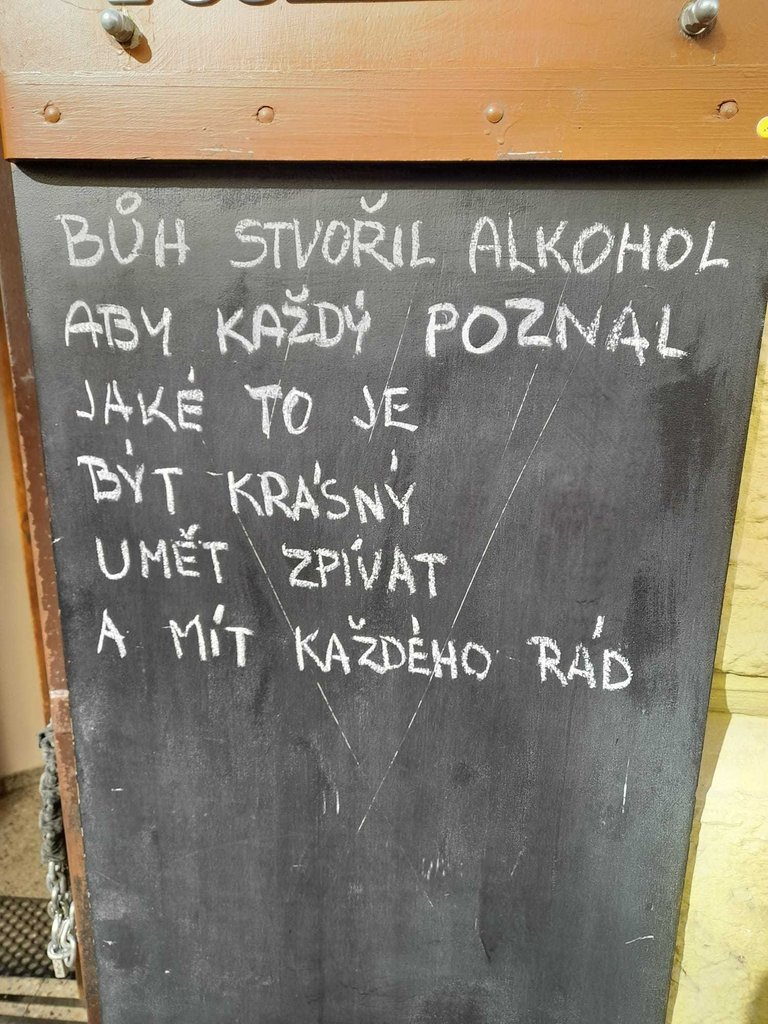 BŮH STVOŘIL ALKOHOL
ABY KAŽDÝ POZNAL
JAKÉ TO JE
BÝT KRÁSNÝ
UMĚT ZPÍVAT
A MÍT KAŽDÉHO RÁD